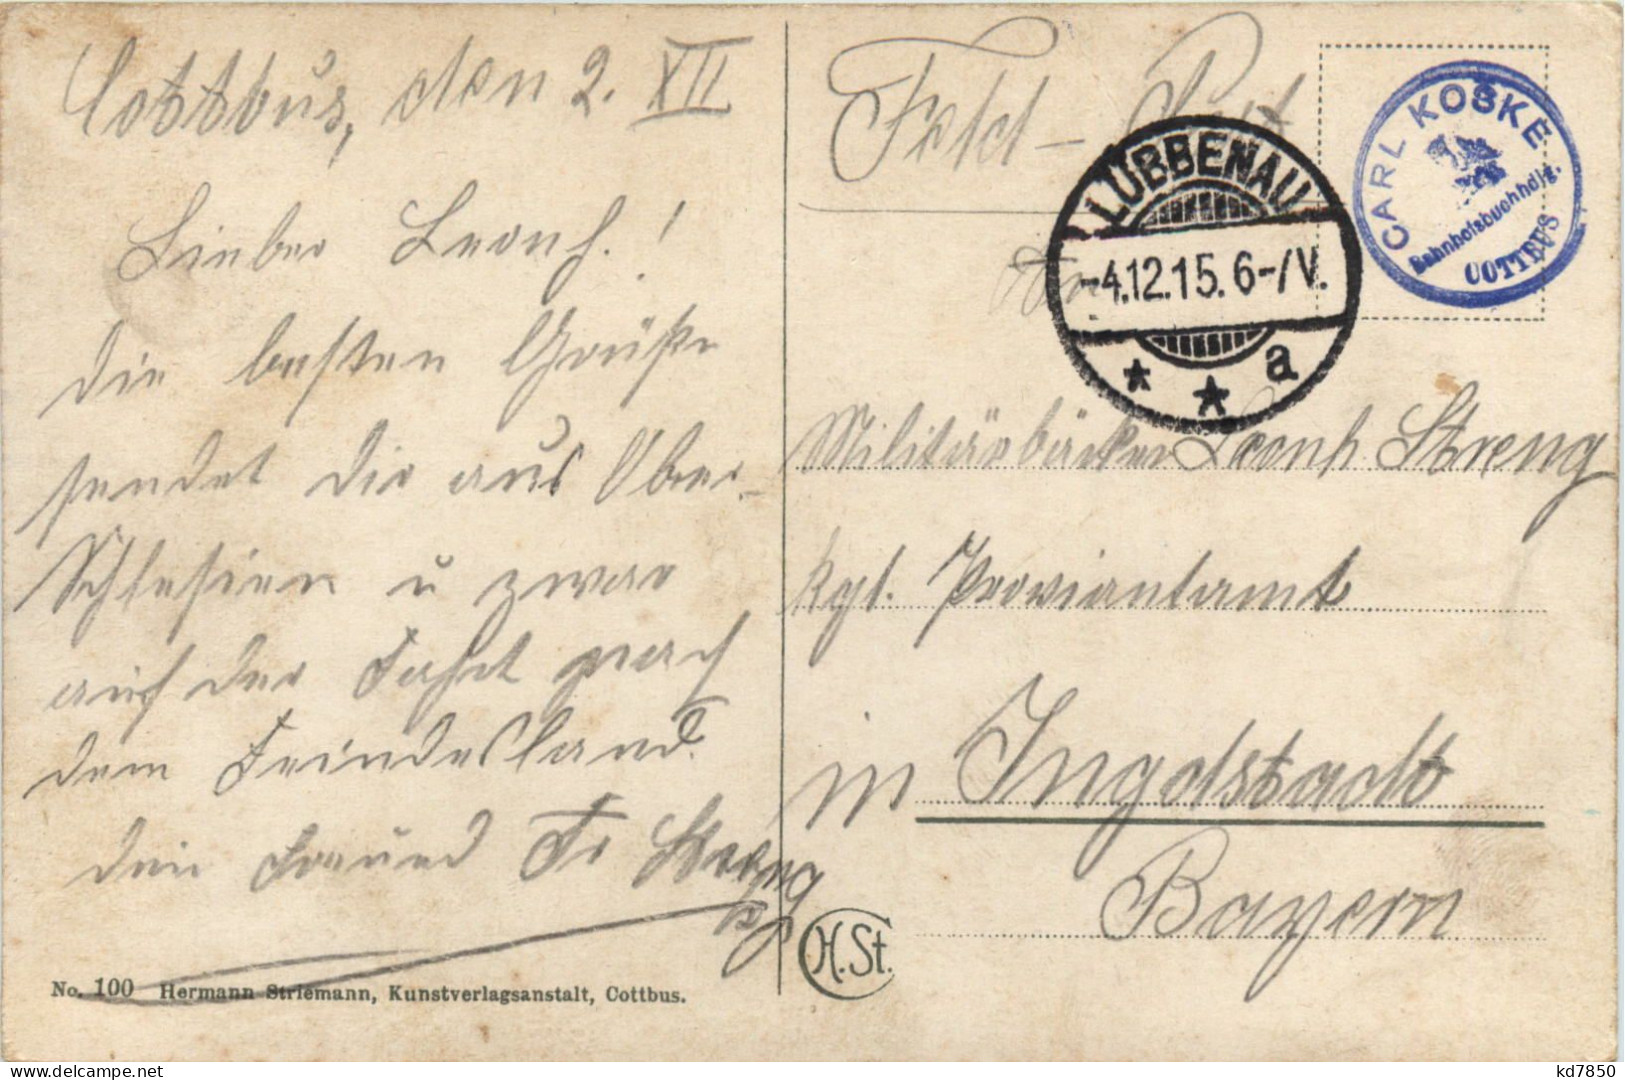 Cottbus, den 2. XII
Lieber Leonh.!
die besten Grüße
sendet dir aus Ober-
Schlesien u zwar
auf der Fahrt nach
dem Feindesland.
dein Freund Fr Streng
No. 100 Hermann Striemann, Kunstverlagsanstalt, Cottbus.
H.St.
Feld-Post
LÜBBENAU
-4.12.15. 6-7V.
* * a
CARL KOSKE
Bahnhofsbuchhdlg.
COTTBUS
An
Militärbäcker Leonh Streng
kgl. Proviantamt
in Ingolstadt
Bayern
kd7850